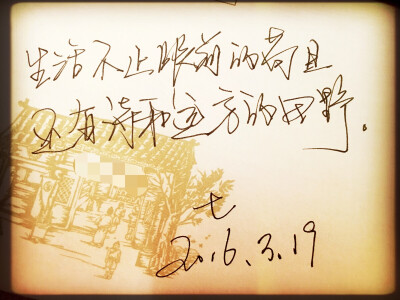 生活不止眼前的苟且
还有诗和远方的田野.
七
2016.3.19